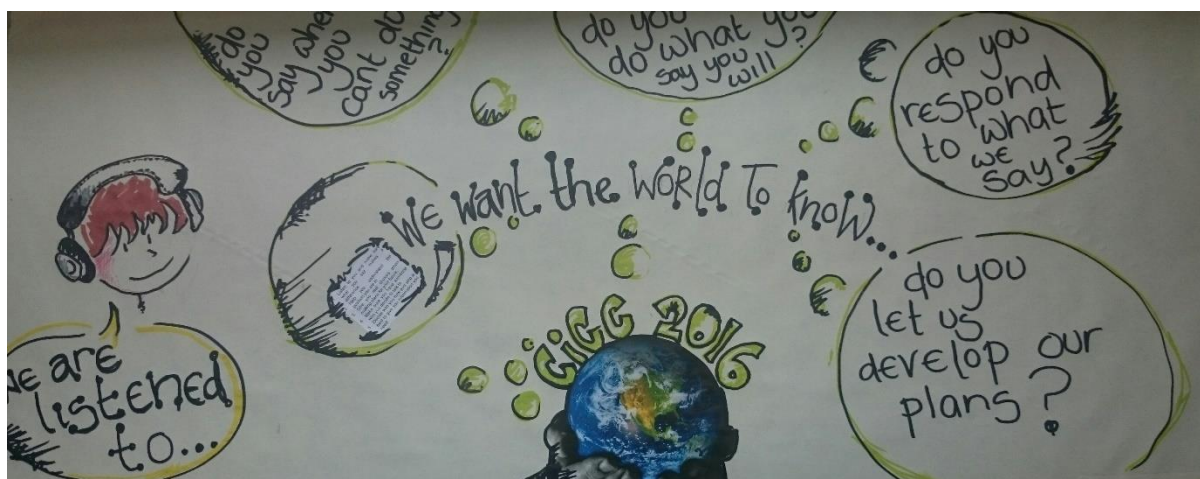 do
you
say when
you
cant do
something
?
do you
do what you
say you
will ?
do you
respond
to what
we
say?
WE want the WORld To know...
CiCC 2016
do you
let us
develop our
plans ?
are
listened
to...